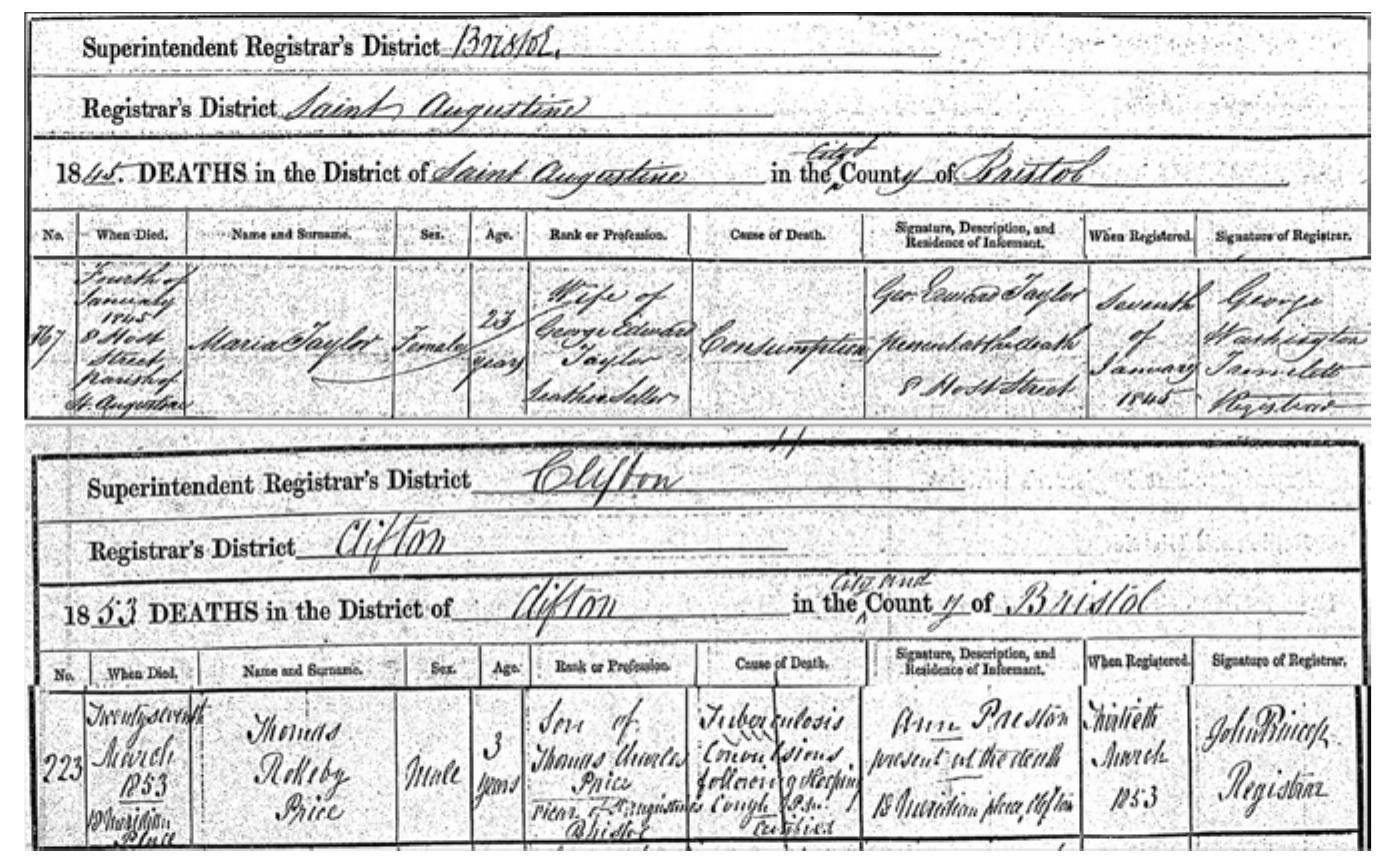 Superintendent Registrar's District Bristol.
Registrar's District Saint Augustine
1845. DEATHS in the District of Saint Augustine in the City & County of Bristol
No. When Died. Name and Surname. Sex. Age. Rank or Profession. Cause of Death. Signature, Description, and Residence of Informant. When Registered. Signature of Registrar.
Fourth of
January
1845
8 Host
Street
parish of
St. Augustine
Maria Taylor
Female
23
years
Wife of
George Edward
Taylor
Leather Seller
Consumption
Geo. Edward Taylor
present at the death
8 Host Street
Seventh
of
January
1845
George
Washington
Tramlett
Registrar
Superintendent Registrar's District Clifton
Registrar's District Clifton
1853 DEATHS in the District of Clifton in the City and County of Bristol
No. When Died. Name and Surname. Sex. Age. Rank or Profession. Cause of Death. Signature, Description, and Residence of Informant. When Registered. Signature of Registrar.
223
Twenty seventh
March
1853
18 Meridian
Place
Thomas
Rokeby
Price
Male
3
years
Son of
Thomas Charles
Price
Vicar of St. Augustines
Bristol
Tuberculosis
Convulsions
following Hooping
Cough
Certified
Ann Preston
present at the death
18 Meridian place, Clifton
Thirtieth
March
1853
John
Registrar